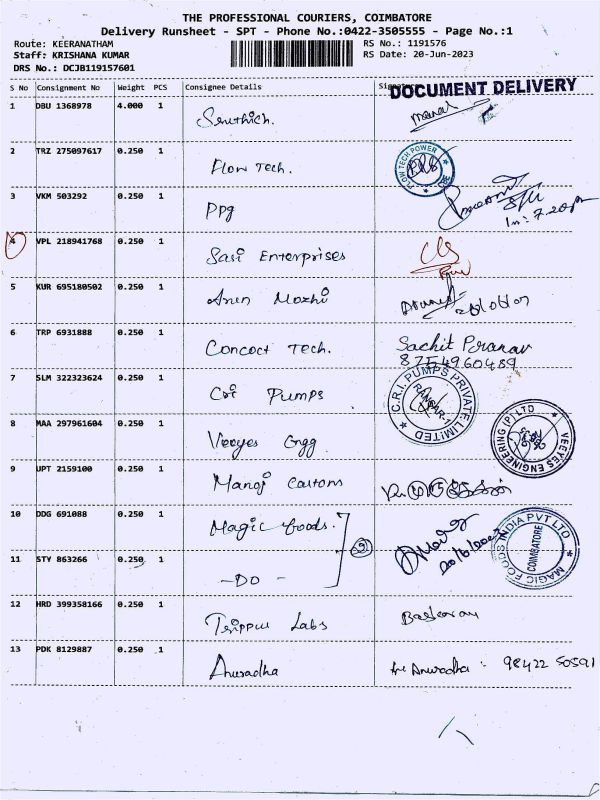 THE PROFESSIONAL COURIERS, COIMBATORE
Delivery Runsheet - SPT - Phone No.:0422-3505555 - Page No.:1
Route: KEERANATHAM RS No.: 1191576
Staff: KRISHANA KUMAR RS Date: 20-Jun-2023
DRS No.: DCJB119157601
DOCUMENT DELIVERY
S No Consignment No Weight PCS Consignee Details
1 DBU 1368978 4.000 1
2 TRZ 275097617 0.250 1 Flow Tech. FLOW TECH POWER
3 VKM 503292 0.250 1 PPg In: 7.20pm
4 VPL 218941768 0.250 1 Sasi Enterprises
5 KUR 695180502 0.250 1 Arun Mozhi
6 TRP 6931888 0.250 1 Concoct Tech. Sachit Pranav
8754960489
7 SLM 322323624 0.250 1 Cri Pumps C.R.I. PUMPS PRIVATE LIMITED
8 MAA 297961604 0.250 1 Veeyes Engg VEEYES ENGINEERING (P) LTD
9 UPT 2159100 0.250 1 Manoj Cartons
10 DDG 691088 0.250 1 Magic foods. MAGIC FOODS INDIA PVT LTD COIMBATORE
11 STY 863266 0.250 1 -DO- 20/6/2023
12 HRD 399358166 0.250 1 Trippu Labs Baskaran
13 PDK 8129887 0.250 1 Anuradha Anuradha: 98422 50591